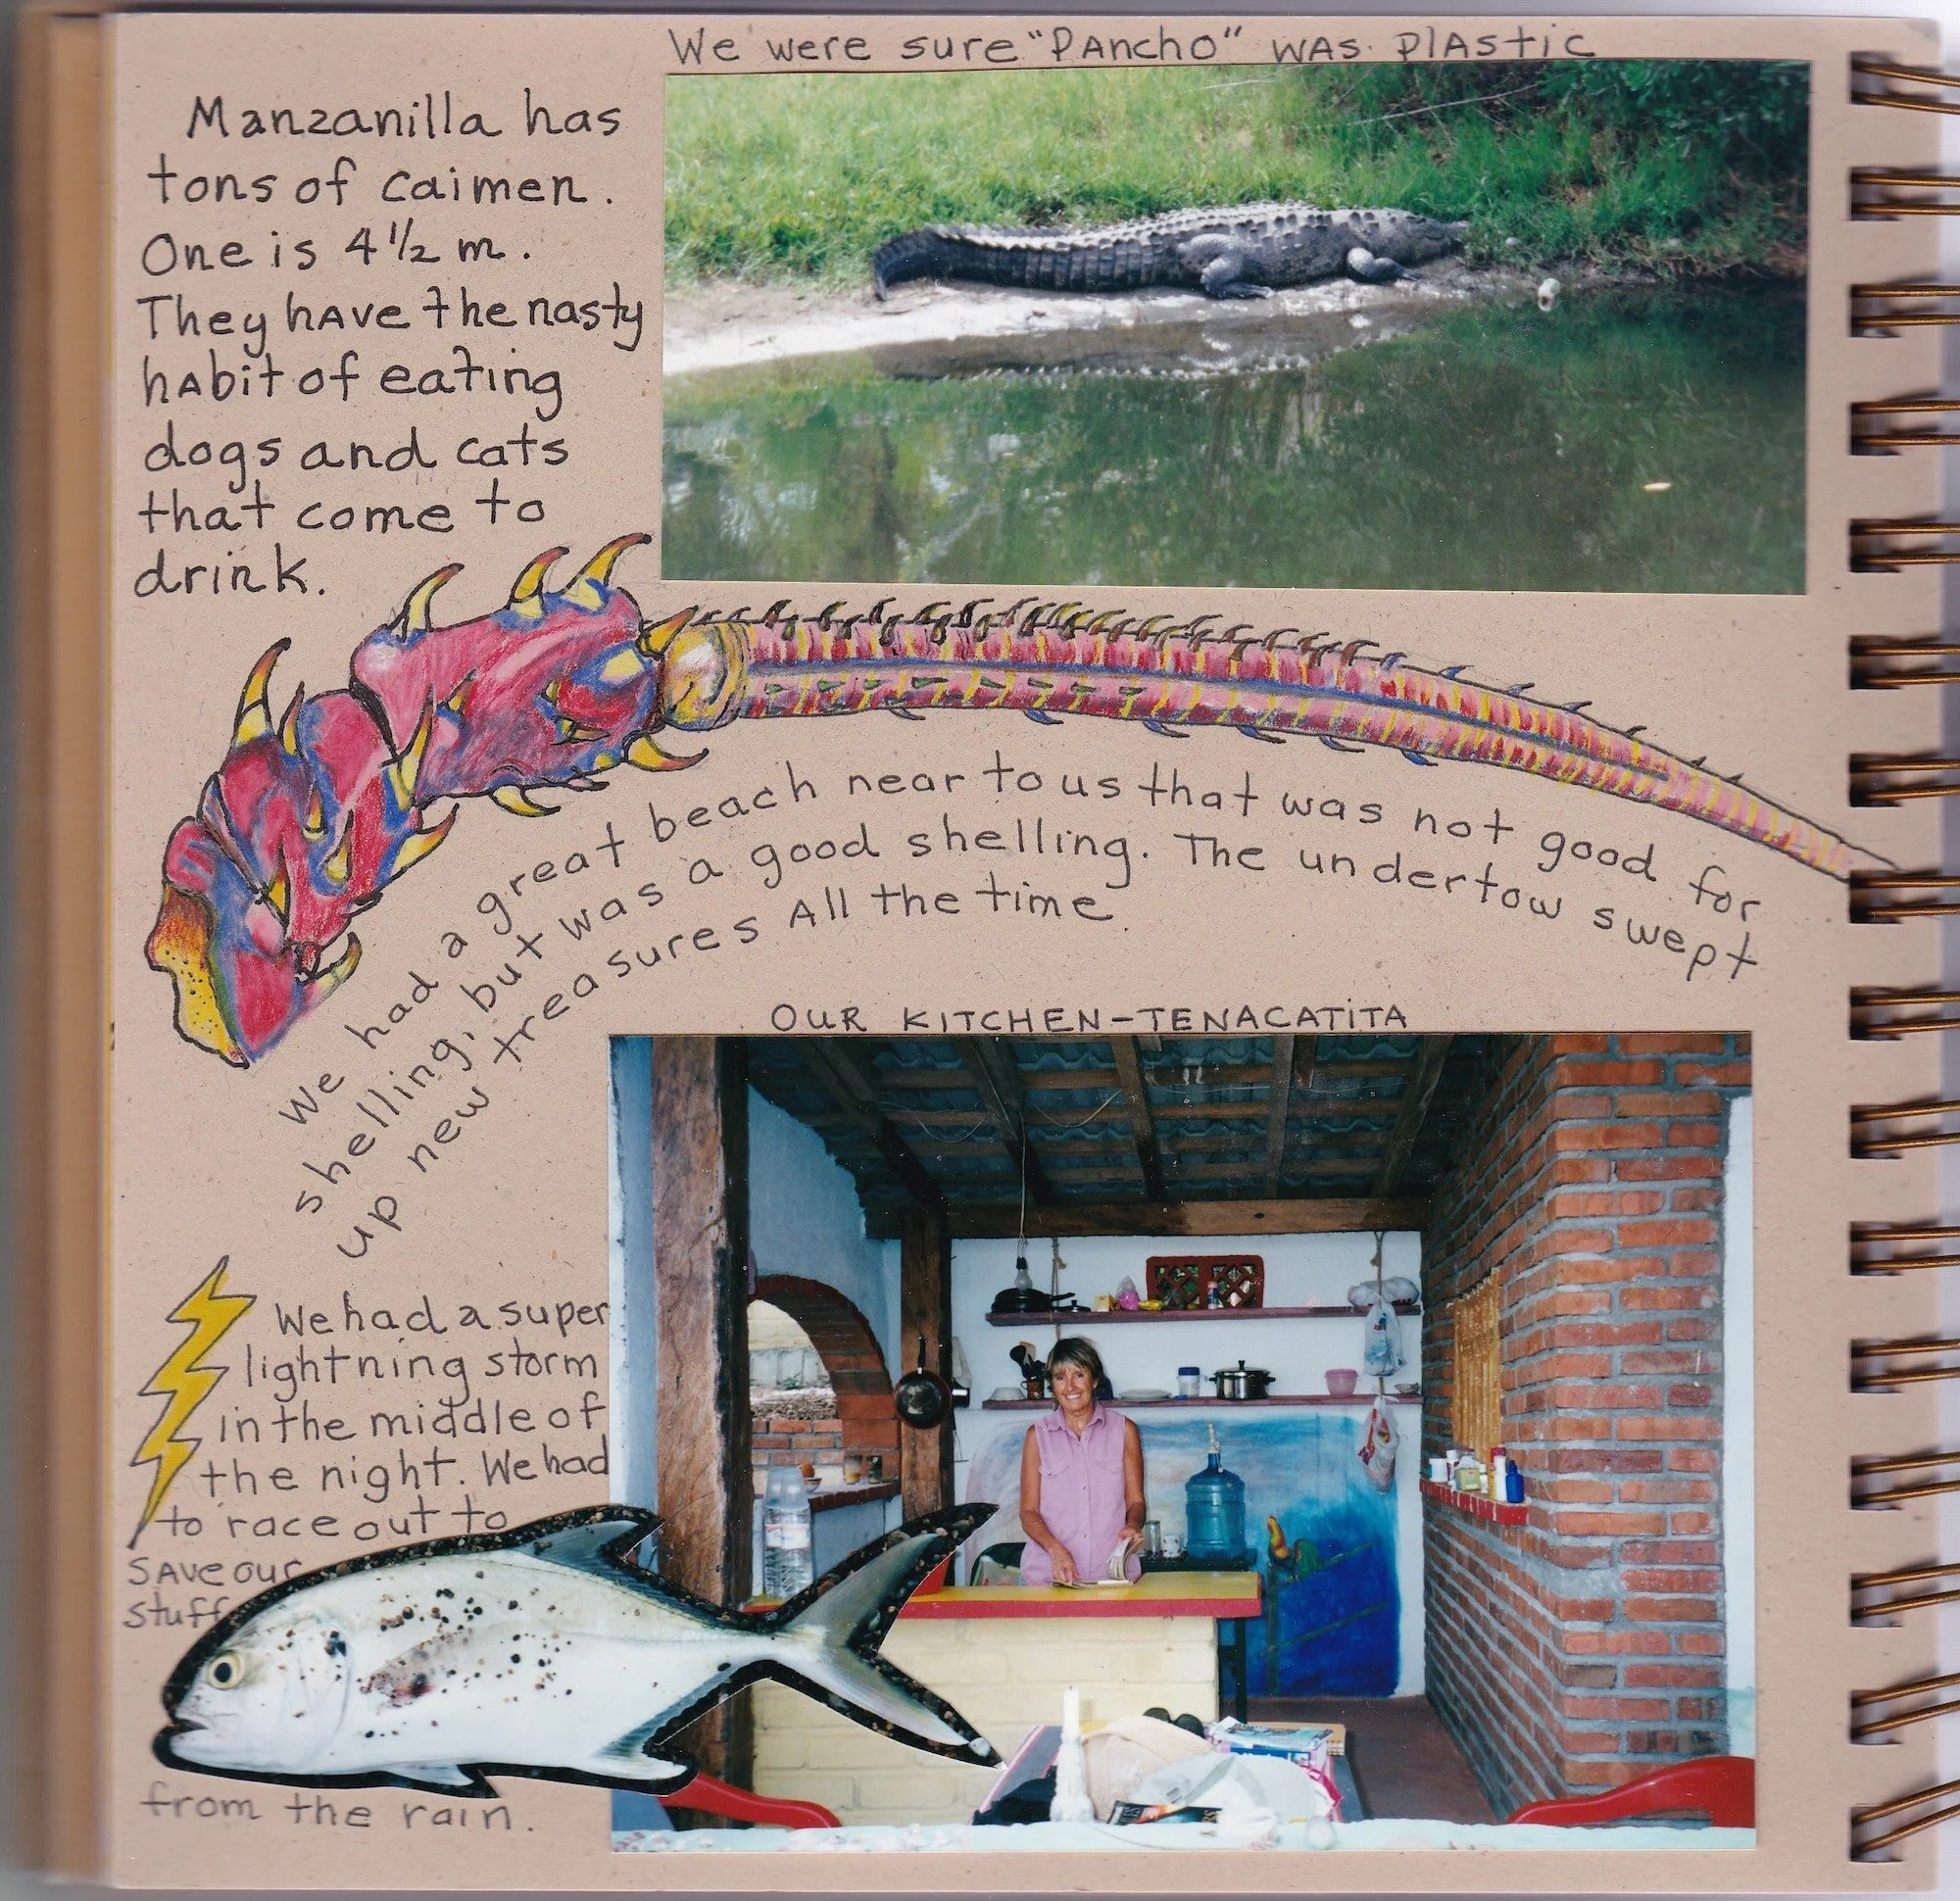 We were sure "PAncho" WAS PlAStic
Manzanilla has
tons of caimen.
One is 4 1/2 m.
They hAve the nasty
hAbit of eating
dogs and cats
that come to
drink.
We had a great beach near to us that was not good for
shelling, but was a good shelling. The undertow swept
up new treasures All the time
OUR KITCHEN-TENACATiTA
We had a super
lightning storm
in the middle of
the night. We had
to race out to
SAVe our
stuff
from the rain.